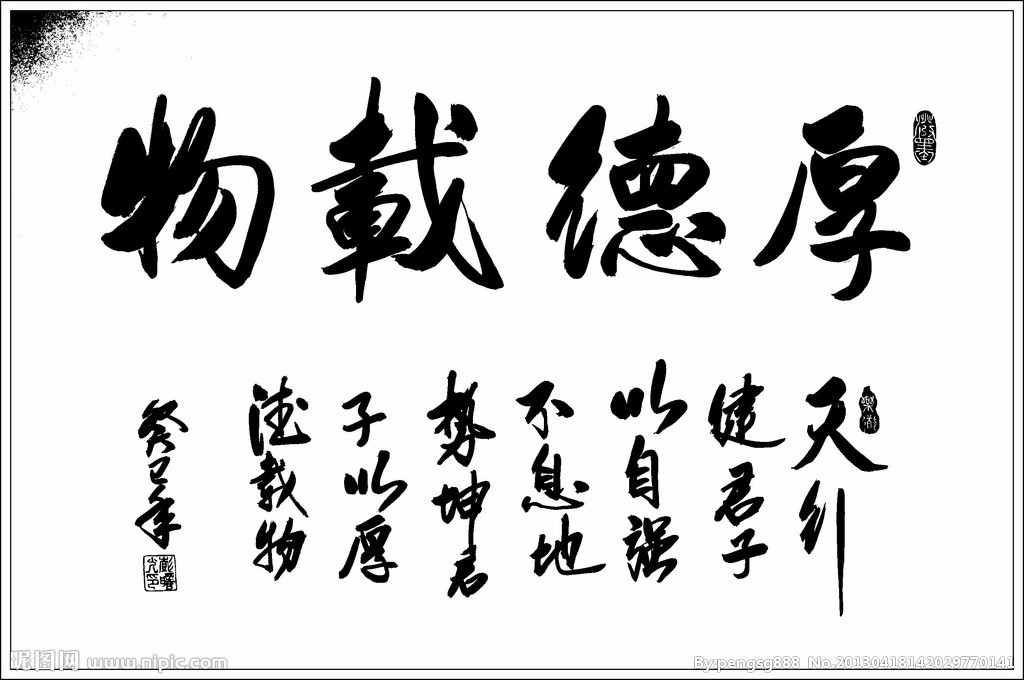 厚德載物
天行
健君子
以自强
不息地
势坤君
子以厚
德载物
癸巳年
昵图网 www.nipic.com
By:pengsg888 No.20130418142029770141